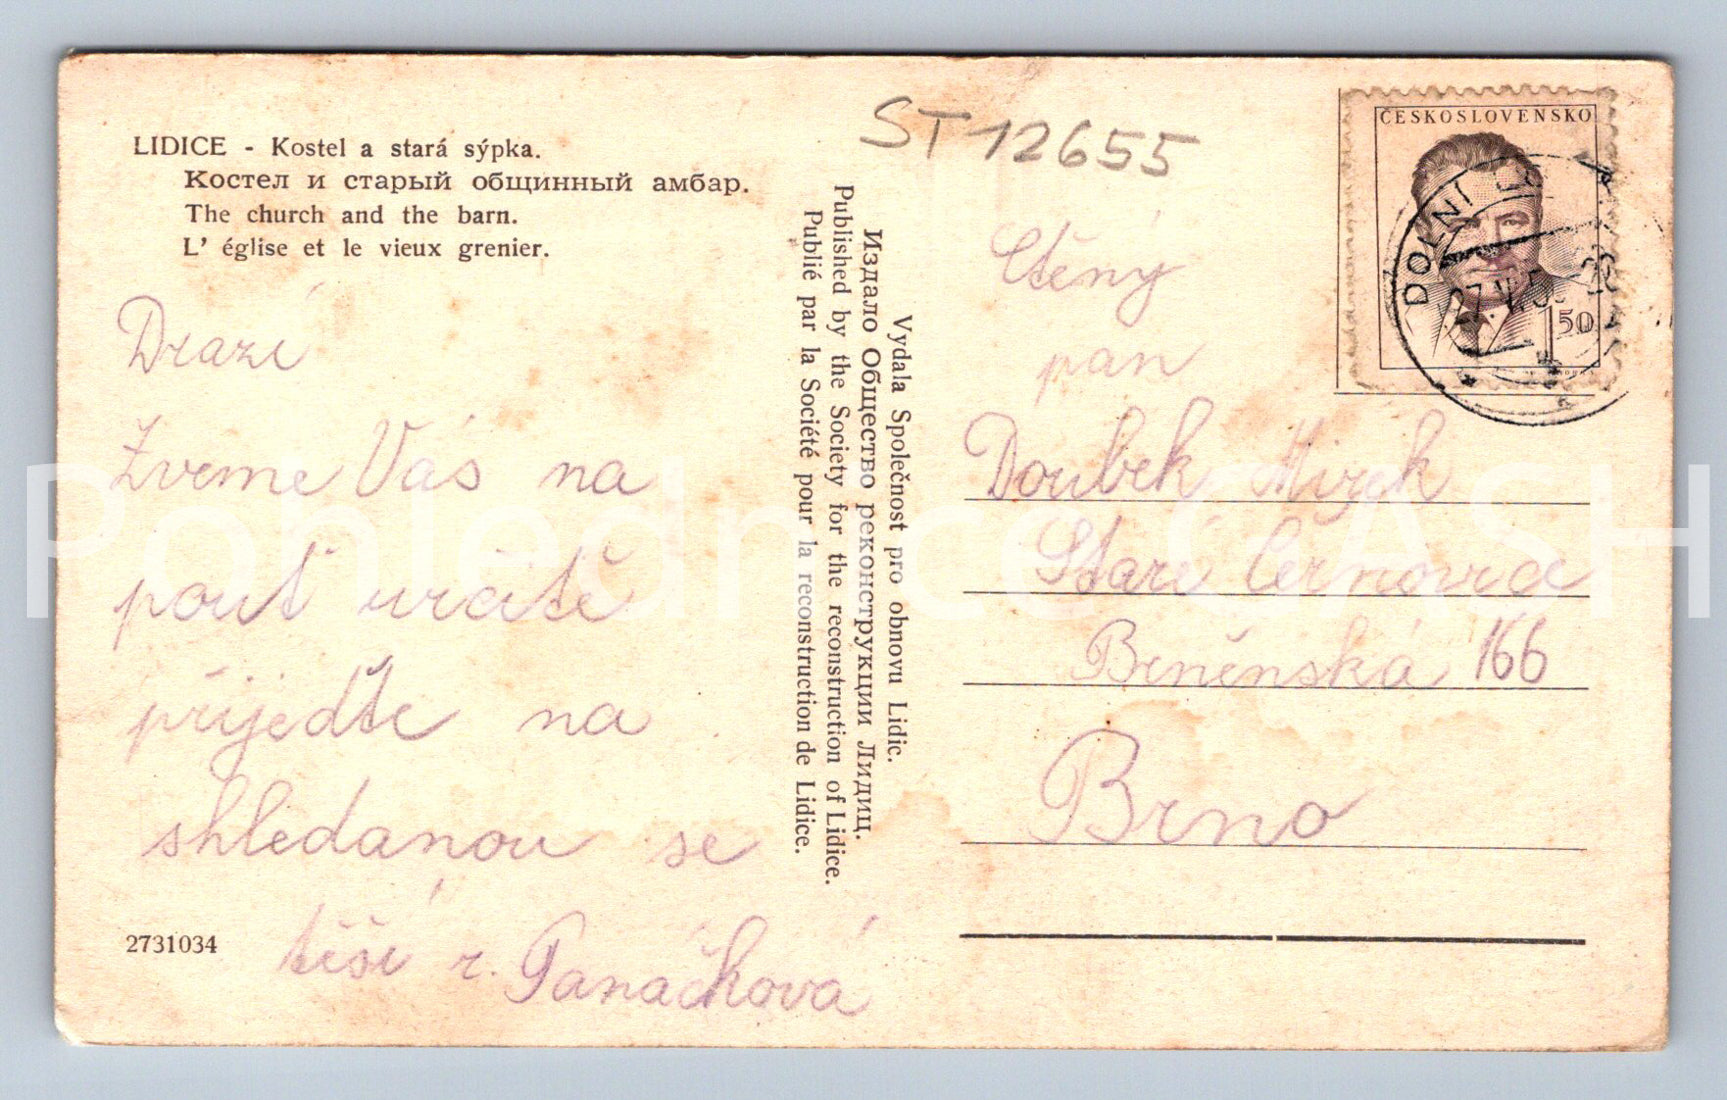 LIDICE - Kostel a stará sýpka.
Костел и старый общинный амбар.
The church and the barn.
L' église et le vieux grenier.
ST 12655
ČESKOSLOVENSKO
1.50
DOLNÍ
Drazí
Zveme Vás na
pouť určitě
přijeďte na
shledanou se
těší r. Panáčková
2731034
Vydala Společnost pro obnovu Lidic.
Издало Общество реконструкции Лидиц.
Published by the Society for the reconstruction of Lidice.
Publié par la Société pour la reconstruction de Lidice.
Ctěný
pan
Doubek Mirek
Staré Černovice
Brněnská 166
Brno
Pohlednice GASH